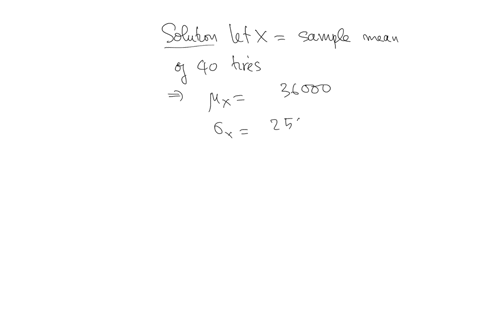 Solution let X = sample mean
of 40 tires
⇒ μx = 36000
σx = 25